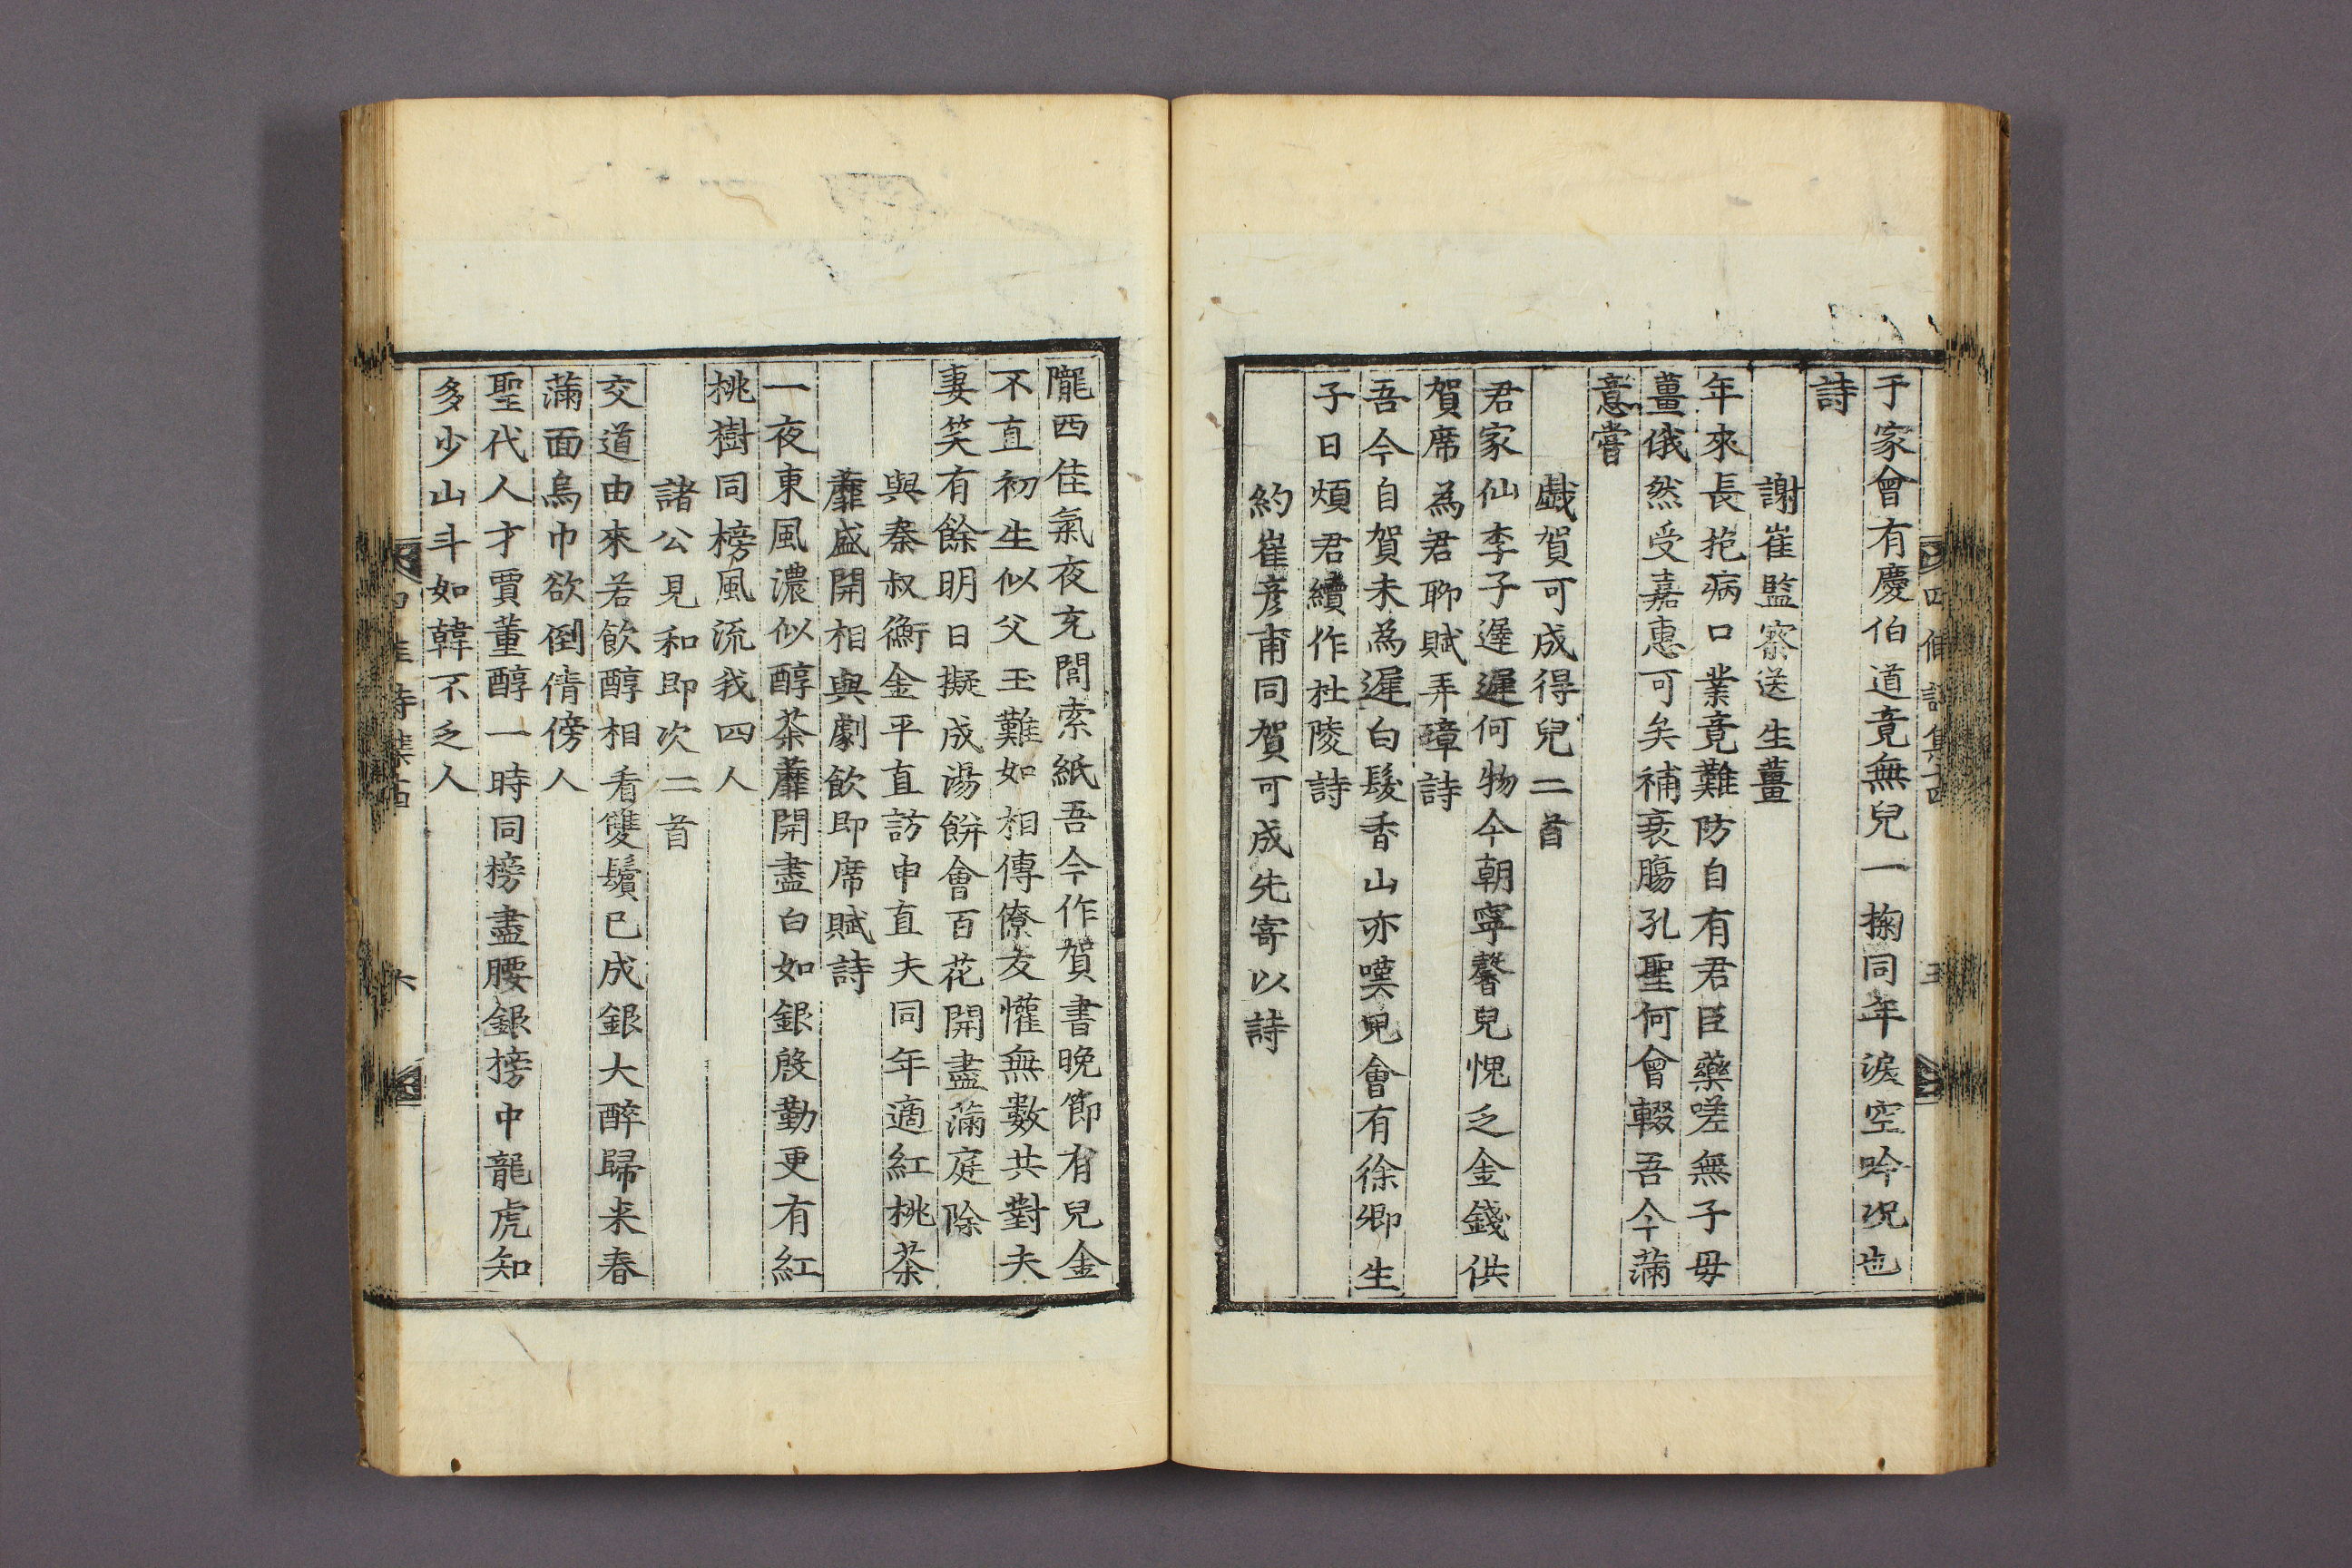 于家會有慶伯道竟無兒一掬同年淚空吟況也
詩
謝崔監察送生薑
年來長抱病口業竟難防自有君臣藥嗟無子母
薑俄然受嘉惠可矣補衰膓孔聖何會輟吾今滿
意嘗
戱賀可成得兒二首
君家仙李子遲遲何物今朝寧馨兒愧乏金錢供
賀席為君聊賦弄璋詩
吾今自賀未為遲白髮香山亦嘆兒會有徐卿生
子日煩君續作杜陵詩
約崔彦甫同賀可成先寄以詩
隴西佳氣夜充閭索紙吾今作賀書晚節有兒金
不直初生似父玉難如相傳僚友懽無數共對夫
妻笑有餘明日擬成湯餠會百花開盡滿庭除
與秦叔衡金平直訪申直夫同年適紅桃茶
蘼盛開相與劇飲即席賦詩
一夜東風濃似醇茶蘼開盡白如銀慇勤更有紅
桃樹同榜風流我四人
諸公見和即次二首
交道由來若飲醇相看雙鬢已成銀大醉歸来春
滿面烏巾欲倒倩傍人
聖代人才賈董醇一時同榜盡腰銀榜中龍虎知
多少山斗如韓不乏人
六